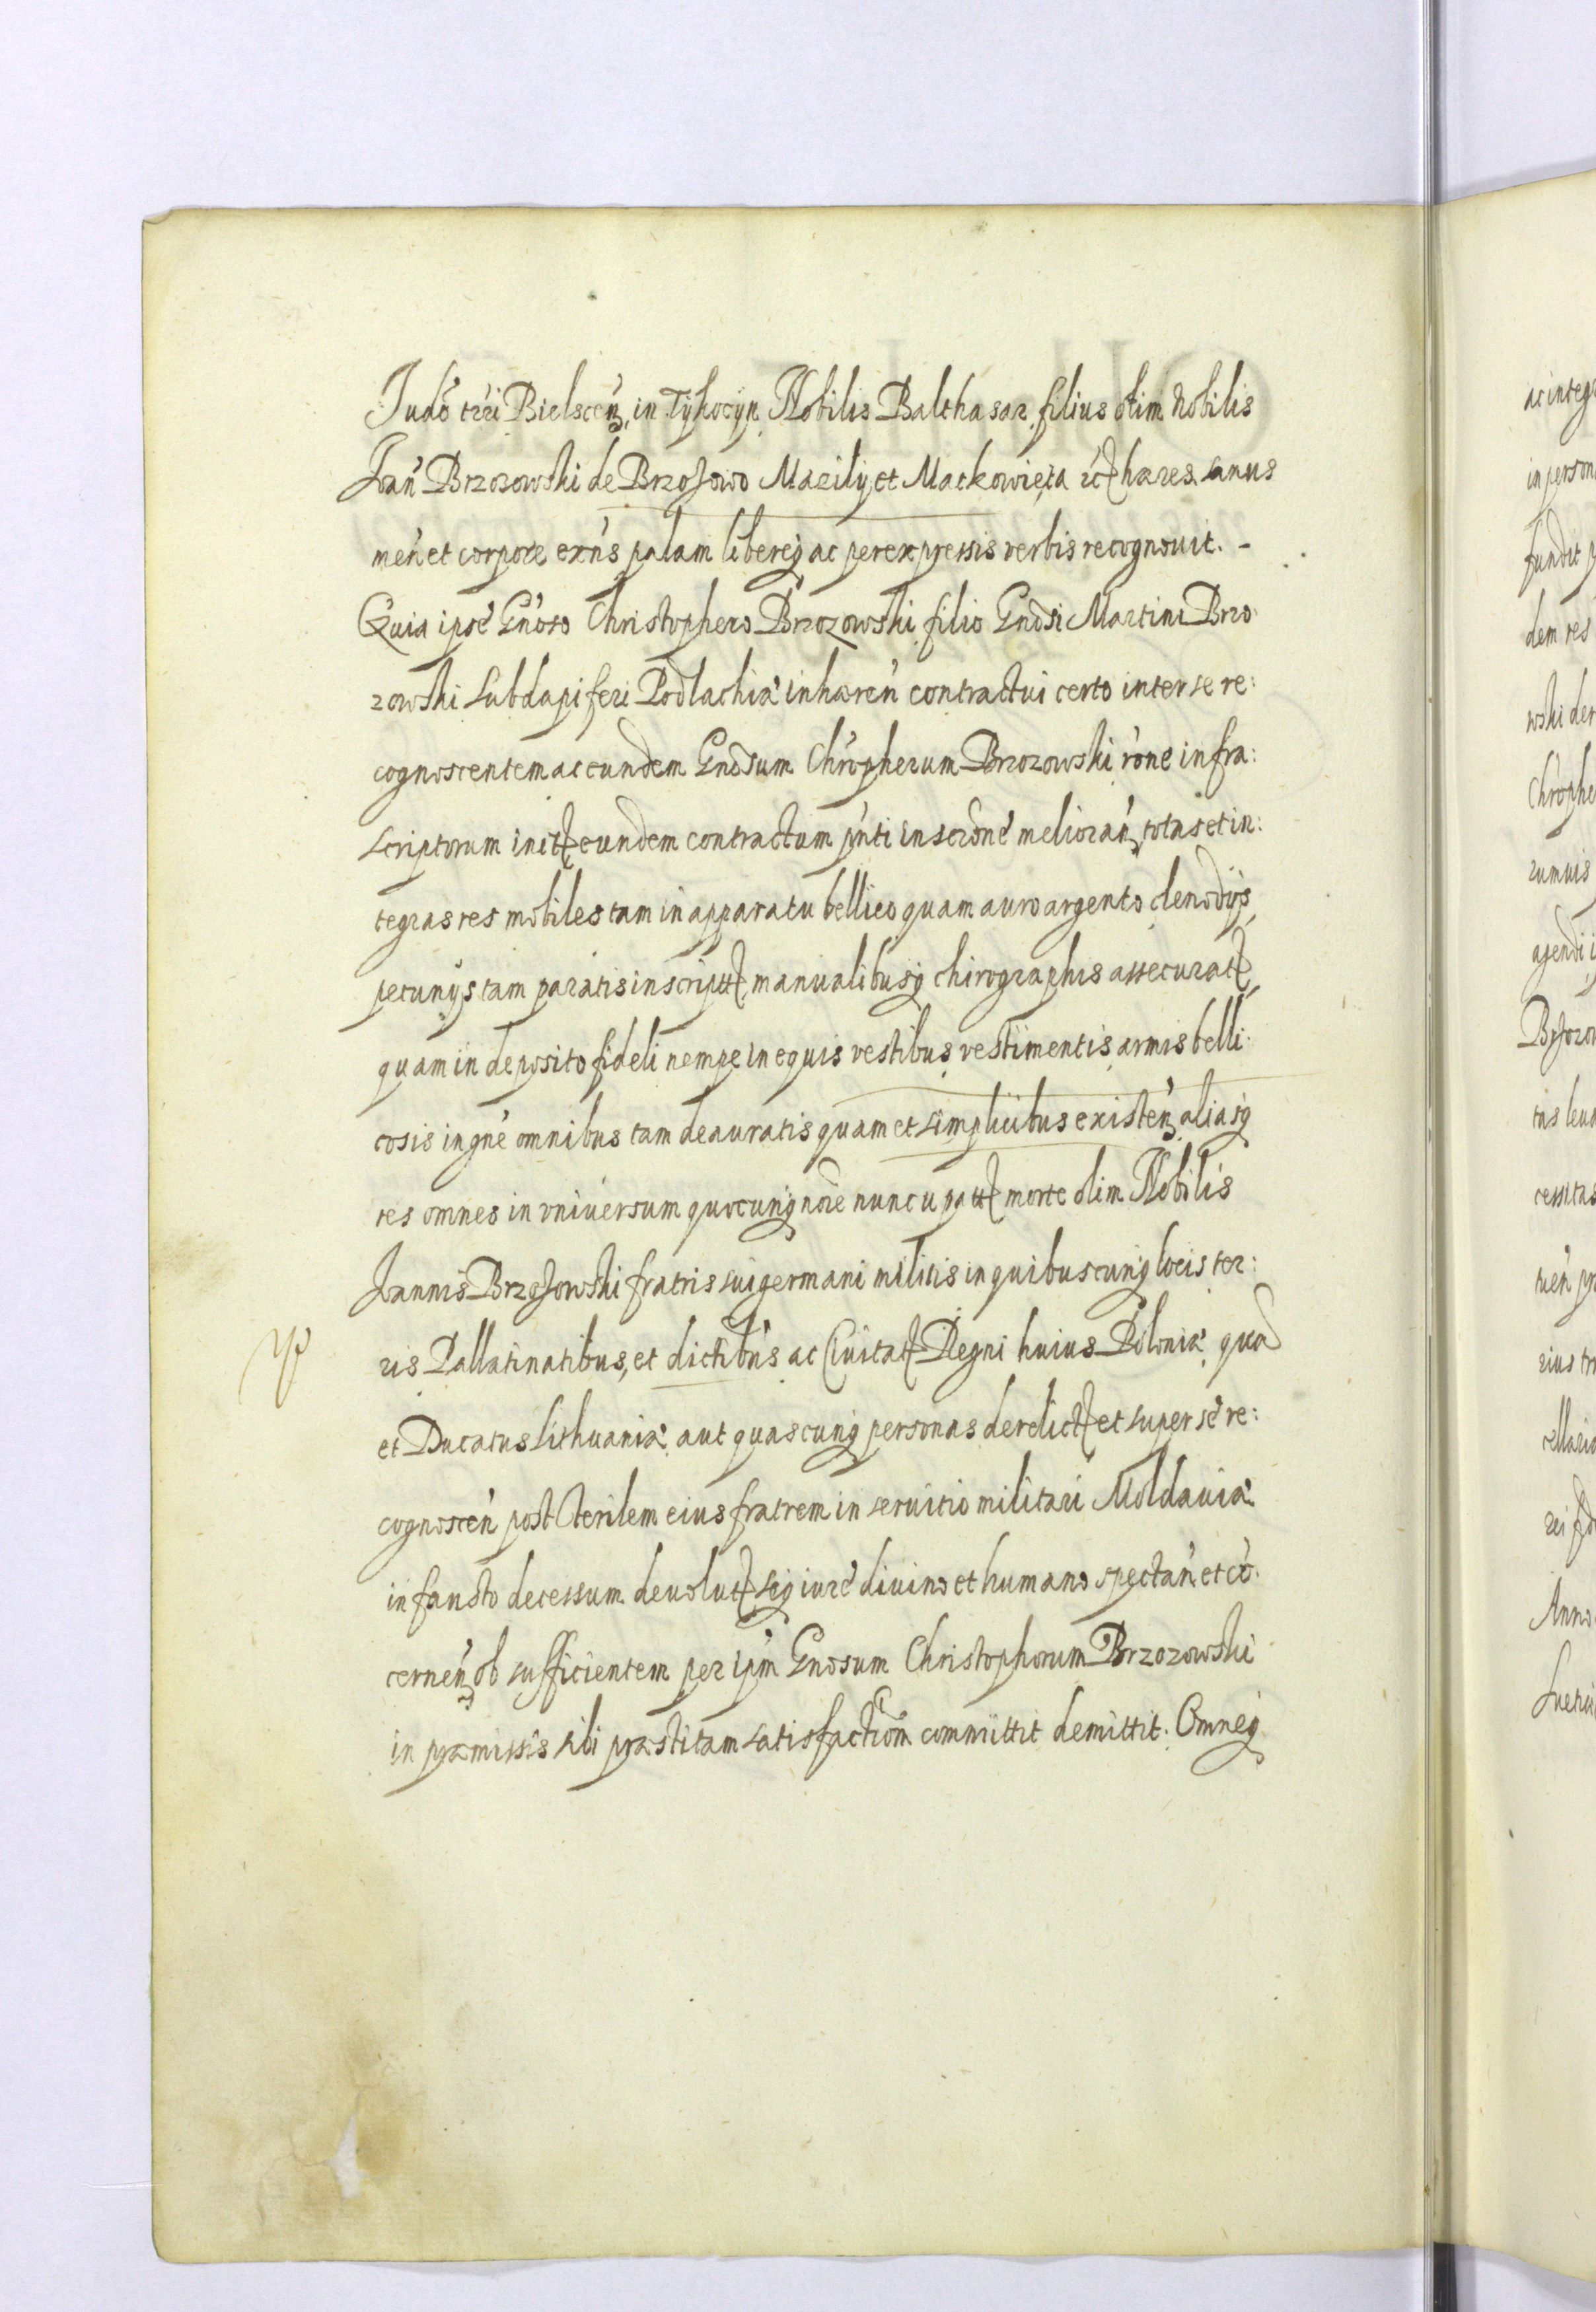 Judō trri Bielscen, in Tykocyn Nobilis Balthasar filius olim Nobilis
Joan̄ Brzozowski de Brzozowo Mazily et Matkowięta hæres sanus
men̄ et corpore exn̄s palam libereq́ ac per expressis verbis recognovit. -
Quia ipse Gn̄oso Christophero Brzozowski filio Gnosi Martini Brzo:
zowski Subdapiferi Podlachiæ inhæren̄ contractui certo inter se re:
cognoscentem ac eundem Gnosum Chr̄opherum Brzozowski r̄one infra:
scriptorum init eundem contractum pn̄ti inscr̄one melioran̄, totas et in:
tegras res mobiles tam in apparatu bellico quam auro argento clenodijs,
pecunijs tam paratis inscriptt, manualibusq́ chirographis assecurat,
quam in deposito fideli nempe in equis vestibus, vestimentis, armis belli:
cosis in gn̄e omnibus tam deauratis quam et simplicibus existen̄, aliasq́
res omnes in vniversum quocunq́ noīe nuncupatt morte olim Nobilis
Joannis Brzozowski fratris sui germani militis in quibuscunq́ locis ter:
ris Pallatinatibus, et dictibus ac Civitat Regni huius Poloniæ quā
et Ducatus Lithuaniæ aut quascunq́ personas derelict et super se re:
cognoscen̄ post sterilem eius fratrem in servitio militari Moldaviæ
infausto decessum devolut seq́ iure divino et humano spectan̄ et cō:
cernen̄, ob sufficientem per ipm̄ Gnosum Christophorum Brzozowski
in præmissis sibi præstitam satisfactiōm committit demittit. Omneq́
ac integr
in person
fundit
dem res
wski der
Chrophe
rumvis
agendi i
Brzozow
tus leva
cessitas
tuen̄ pr
rius tr
cellaria
rei
Anno